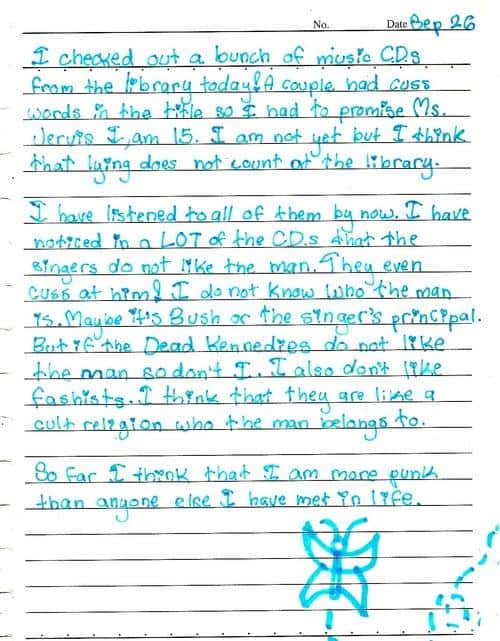 No. Date Sep 26
I checked out a bunch of music CDs
from the library today! A couple had cuss
words in the title so I had to promise Ms.
Jervis I, am 15. I am not yet but I think
that lying does not count at the library.
I have listened to all of them by now. I have
noticed in a LOT of the CD.s that the
singers do not like the man. They even
cuss at him! I do not know who the man
is. Maybe it's Bush or the singer's principal.
But if the Dead Kennedies do not like
the man so don't I. I also don't like
fashists. I think that they are like a
cult religion who the man belongs to.
So far I think that I am more punk
than anyone else I have met in life.